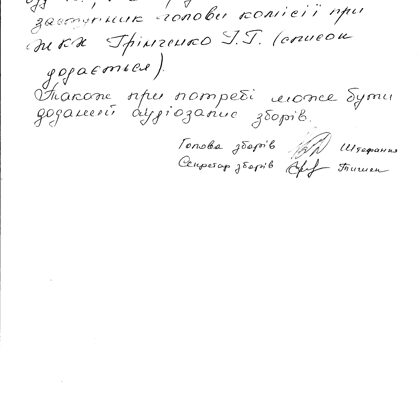 заступник голови комісії при
ЖКХ Грінченко І.Г. (список
додається).
Також при потребі може бути
доданий аудіозапис зборів.
Голова зборів
Секретар зборів